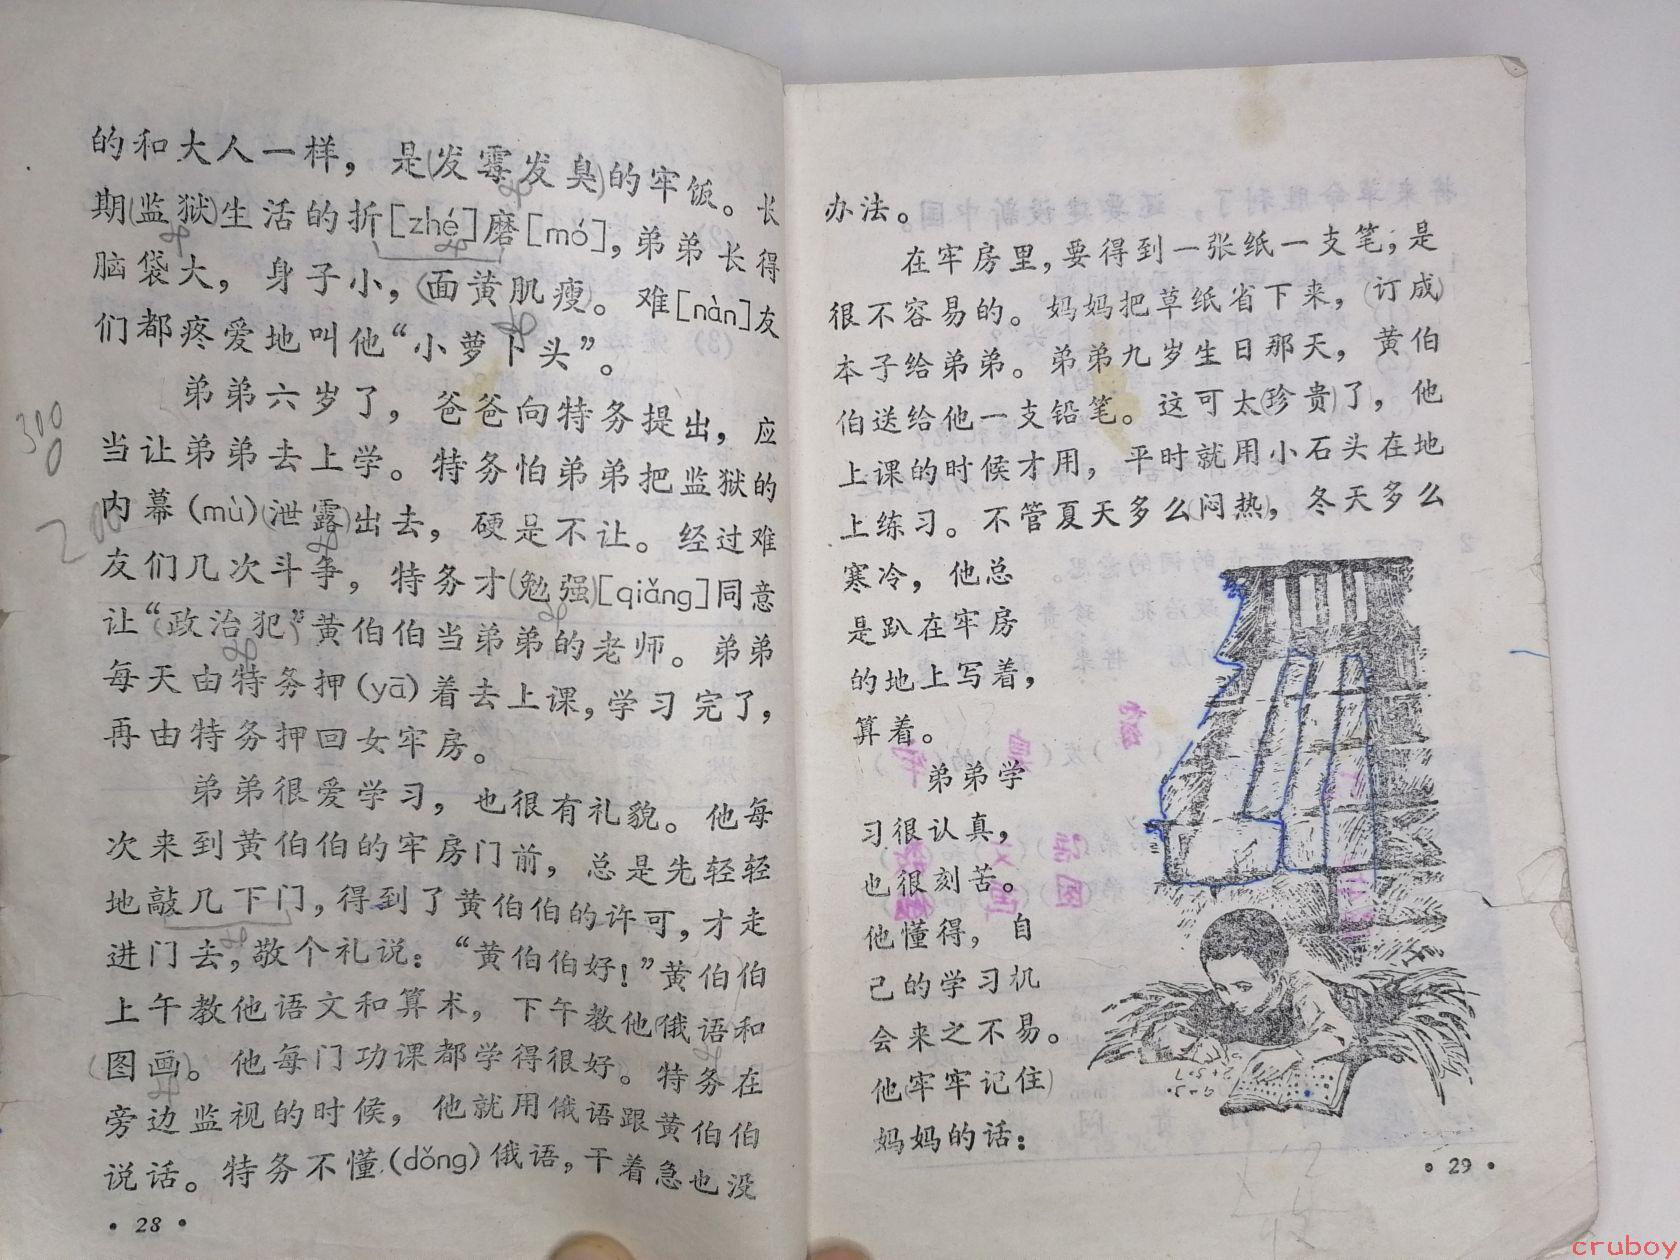 的和大人一样，是(发霉发臭)的牢饭。长
期(监狱)生活的折[zhé]磨[mó]，弟弟长得
脑袋大，身子小，(面黄肌瘦)。难[nàn]友
们都疼爱地叫他“小萝卜头”。
弟弟六岁了，爸爸向特务提出，应
当让弟弟去上学。特务怕弟弟把监狱的
内幕(mù)(泄露)出去，硬是不让。经过难
友们几次斗争，特务才(勉强)[qiǎng]同意
让“(政治犯)”黄伯伯当弟弟的老师。弟弟
每天由特务押(yā)着去上课，学习完了，
再由特务押回女牢房。
弟弟很爱学习，也很有礼貌。他每
次来到黄伯伯的牢房门前，总是先轻轻
地敲几下门，得到了黄伯伯的许可，才走
进门去，敬个礼说：“黄伯伯好！”黄伯伯
上午教他语文和算术，下午教他俄语和
(图画)。他每门功课都学得很好。特务在
旁边监视的时候，他就用俄语跟黄伯伯
说话。特务不懂(dǒng)俄语，干着急也没
• 28 •
310
0
200
办法。
在牢房里，要得到一张纸一支笔，是
很不容易的。妈妈把草纸省下来，(订成)
本子给弟弟。弟弟九岁生日那天，黄伯
伯送给他一支铅笔。这可太(珍贵)了，他
上课的时候才用，平时就用小石头在地
上练习。不管夏天多么(闷热)，冬天多么
寒冷，他总
是趴在牢房
的地上写着，
算着。
弟弟学
习很认真，
也很刻苦。
他懂得，自
己的学习机
会来之不易。
他(牢牢记住)
妈妈的话：
• 29 •
cruboy